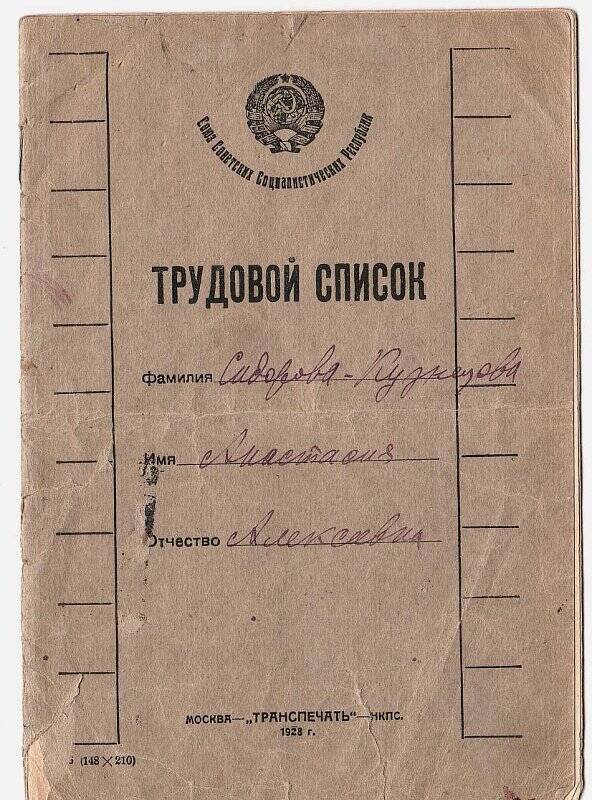 Союз Советских Социалистических Республик
ТРУДОВОЙ СПИСОК
Фамилия Сидорова-Кузнецова
Имя Анастасия
Отчество Алексевна
МОСКВА—„ТРАНСПЕЧАТЬ“—НКПС.
1928 г.
(148×210)